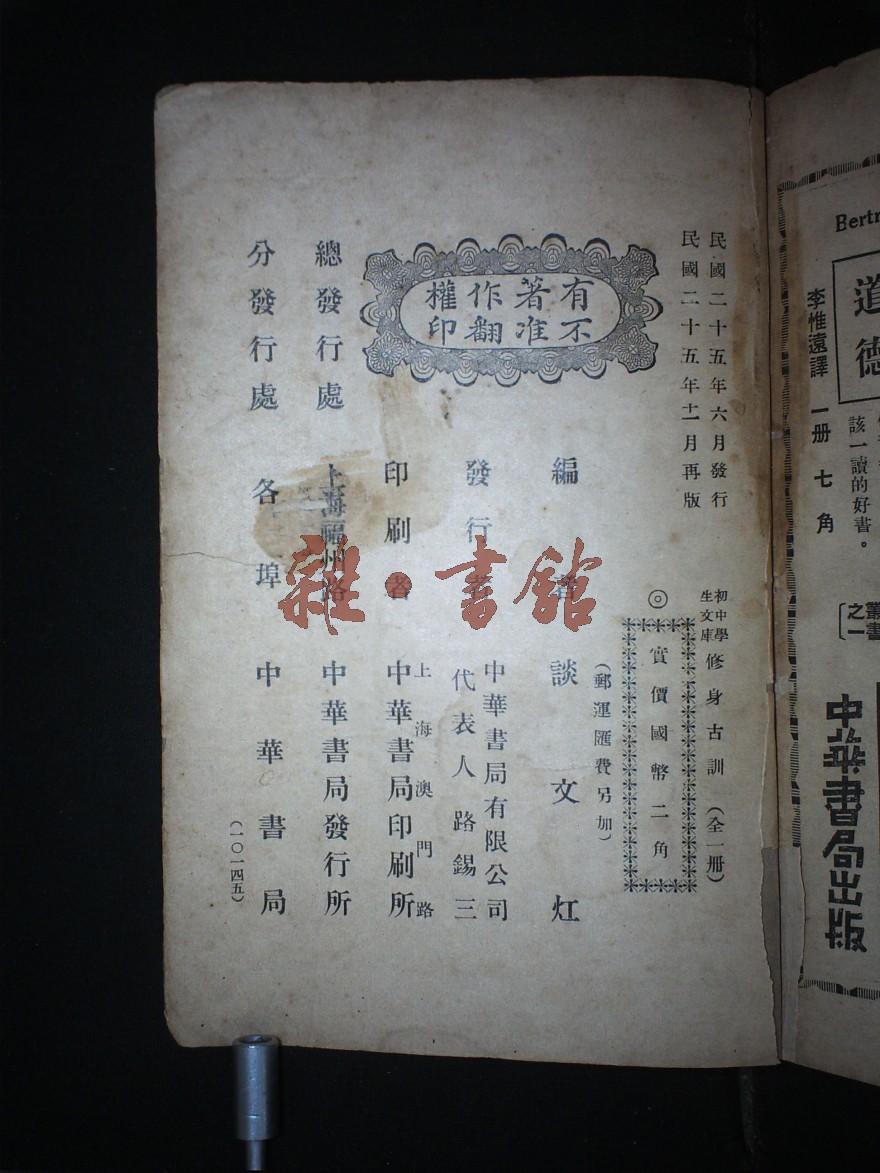 民國二十五年六月發行
民國二十五年十一月再版
初中學生文庫 修身古訓（全一册）
◎實價國幣二角
（郵運匯費另加）
有著作權
不准翻印
編者 談文灴
發行者 中華書局有限公司
代表人路錫三
印刷者 上海澳門路
中華書局印刷所
總發行處 上海福州路 中華書局發行所
分發行處 各埠 中華書局
（一〇一四五）
雜·書館
Bertr
道德
李惟遠譯 一册 七角
該一讀的好書。
叢書之一
中華書局出版